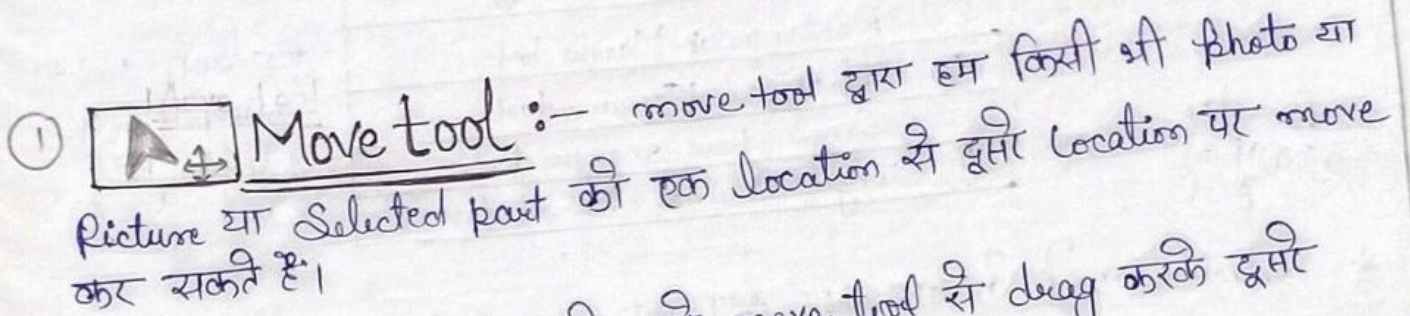 ① Move tool :- move tool द्वारा हम किसी भी photo या
Picture या Selected part को एक location से दूसरे location पर move
कर सकते हैं।
tool से drag करके दूसरे